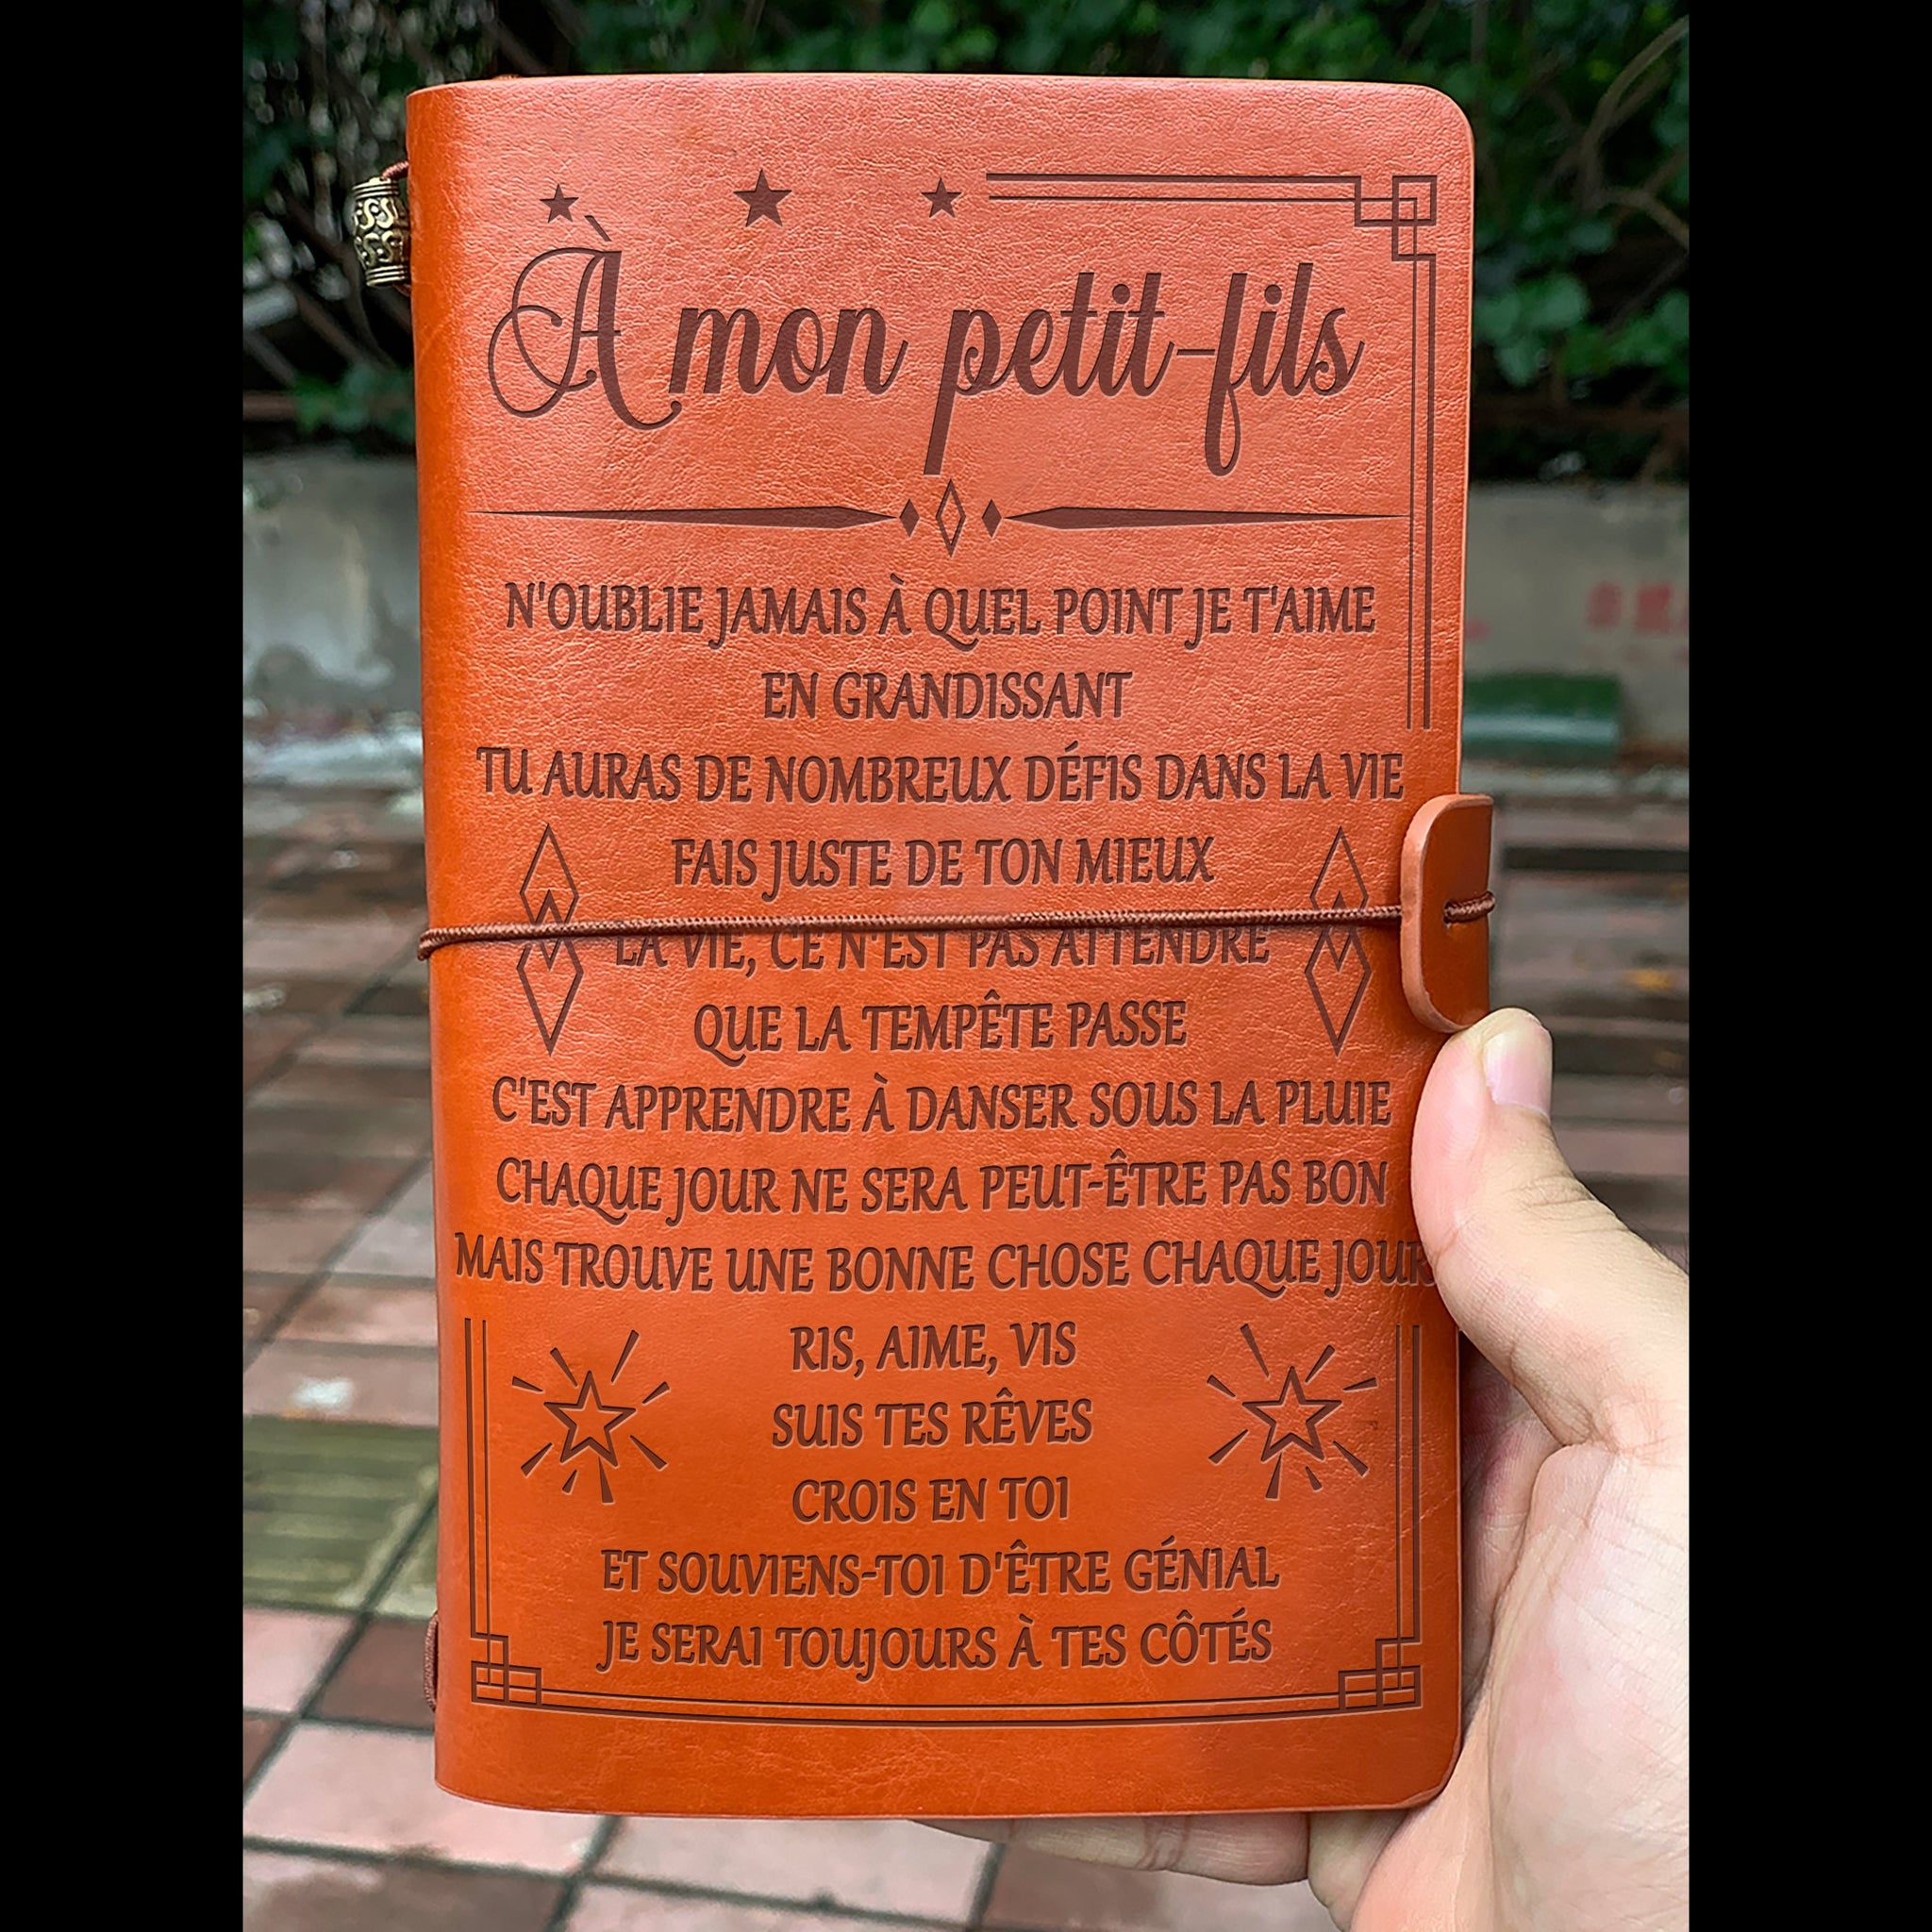 À mon petit-fils
N'OUBLIE JAMAIS À QUEL POINT JE T'AIME
EN GRANDISSANT
TU AURAS DE NOMBREUX DÉFIS DANS LA VIE
FAIS JUSTE DE TON MIEUX
LA VIE, CE N'EST PAS ATTENDRE
QUE LA TEMPÊTE PASSE
C'EST APPRENDRE À DANSER SOUS LA PLUIE
CHAQUE JOUR NE SERA PEUT-ÊTRE PAS BON
MAIS TROUVE UNE BONNE CHOSE CHAQUE JOUR
RIS, AIME, VIS
SUIS TES RÊVES
CROIS EN TOI
ET SOUVIENS-TOI D'ÊTRE GÉNIAL
JE SERAI TOUJOURS À TES CÔTÉS